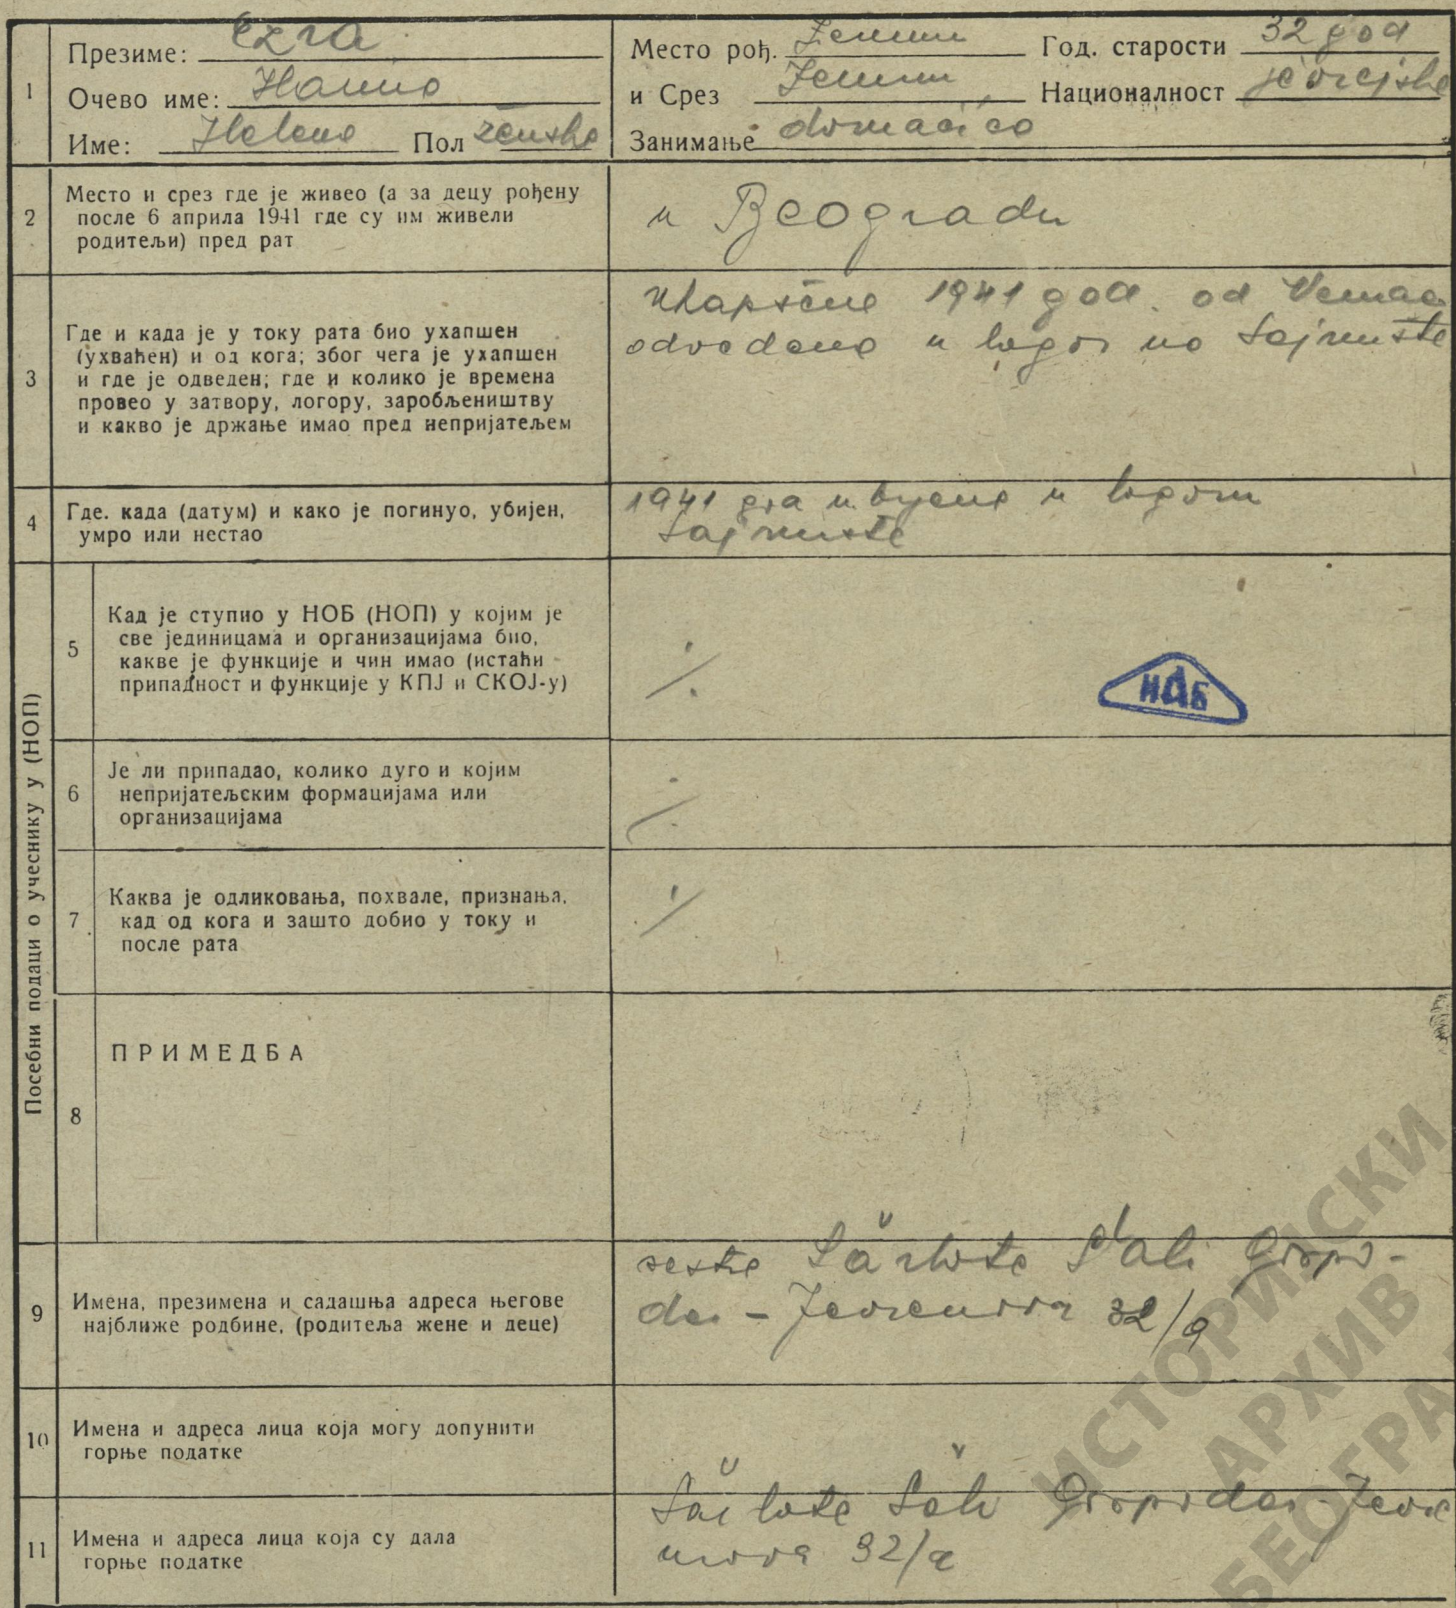 1
Презиме: Ezra
Очево име: Haimo
Име: Helena Пол ženske
Место рођ. Zemun Год. старости 32 god
и Срез Zemun Националност jevrejske
Занимање domaćica
2
Место и срез где је живео (а за децу рођену
после 6 априла 1941 где су им живели
родитељи) пред рат
u Beogradu
3
Где и када је у току рата био ухапшен
(ухваћен) и од кога; због чега је ухапшен
и где је одведен; где и колико је времена
провео у затвору, логору, заробљеништву
и какво је држање имао пред непријатељем
uhapšena 1941 god. od Nemaca
odvedena u logor na Sajmište
4
Где. када (датум) и како је погинуо, убијен,
умро или нестао
1941 ubijena u logoru
Sajmište
Посебни подаци о учеснику у (НОП)
5
Кад је ступио у НОБ (НОП) у којим је
све јединицама и организацијама био,
какве је функције и чин имао (истаћи
припадност и функције у КПЈ и СКОЈ-у)
·/.
6
Је ли припадао, колико дуго и којим
непријатељским формацијама или
организацијама
·/.
7
Каква је одликовања, похвале, признања,
кад од кога и зашто добио у току и
после рата
·/.
8
ПРИМЕДБА
9
Имена, презимена и садашња адреса његове
најближе родбине, (родитеља жене и деце)
Šarlote Gospo-
dar - Jevremova 32/a
10
Имена и адреса лица која могу допунити
горње податке
11
Имена и адреса лица која су дала
горње податке
Šarlote Gospodar-Jevre
mova 32/a
ИСТОРИЈСКИ
АРХИВ
БЕОГРА